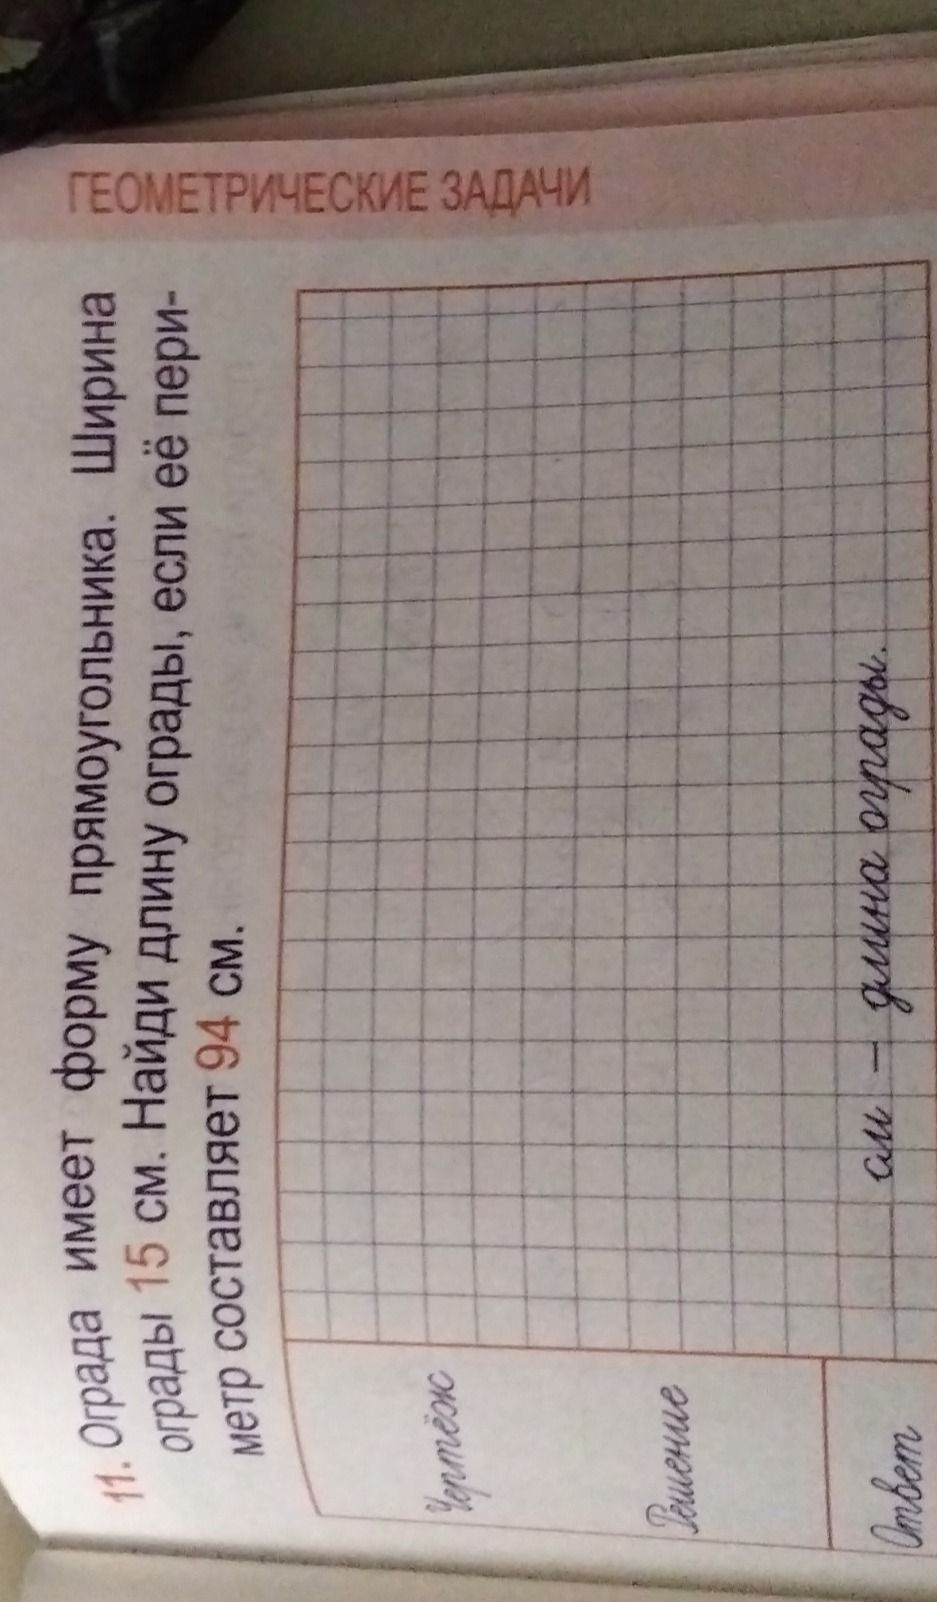 ГЕОМЕТРИЧЕСКИЕ ЗАДАЧИ
11. Ограда имеет форму прямоугольника. Ширина
ограды 15 см. Найди длину ограды, если её пери-
метр составляет 94 см.
Чертёж
Решение
Ответ см – длина ограды.